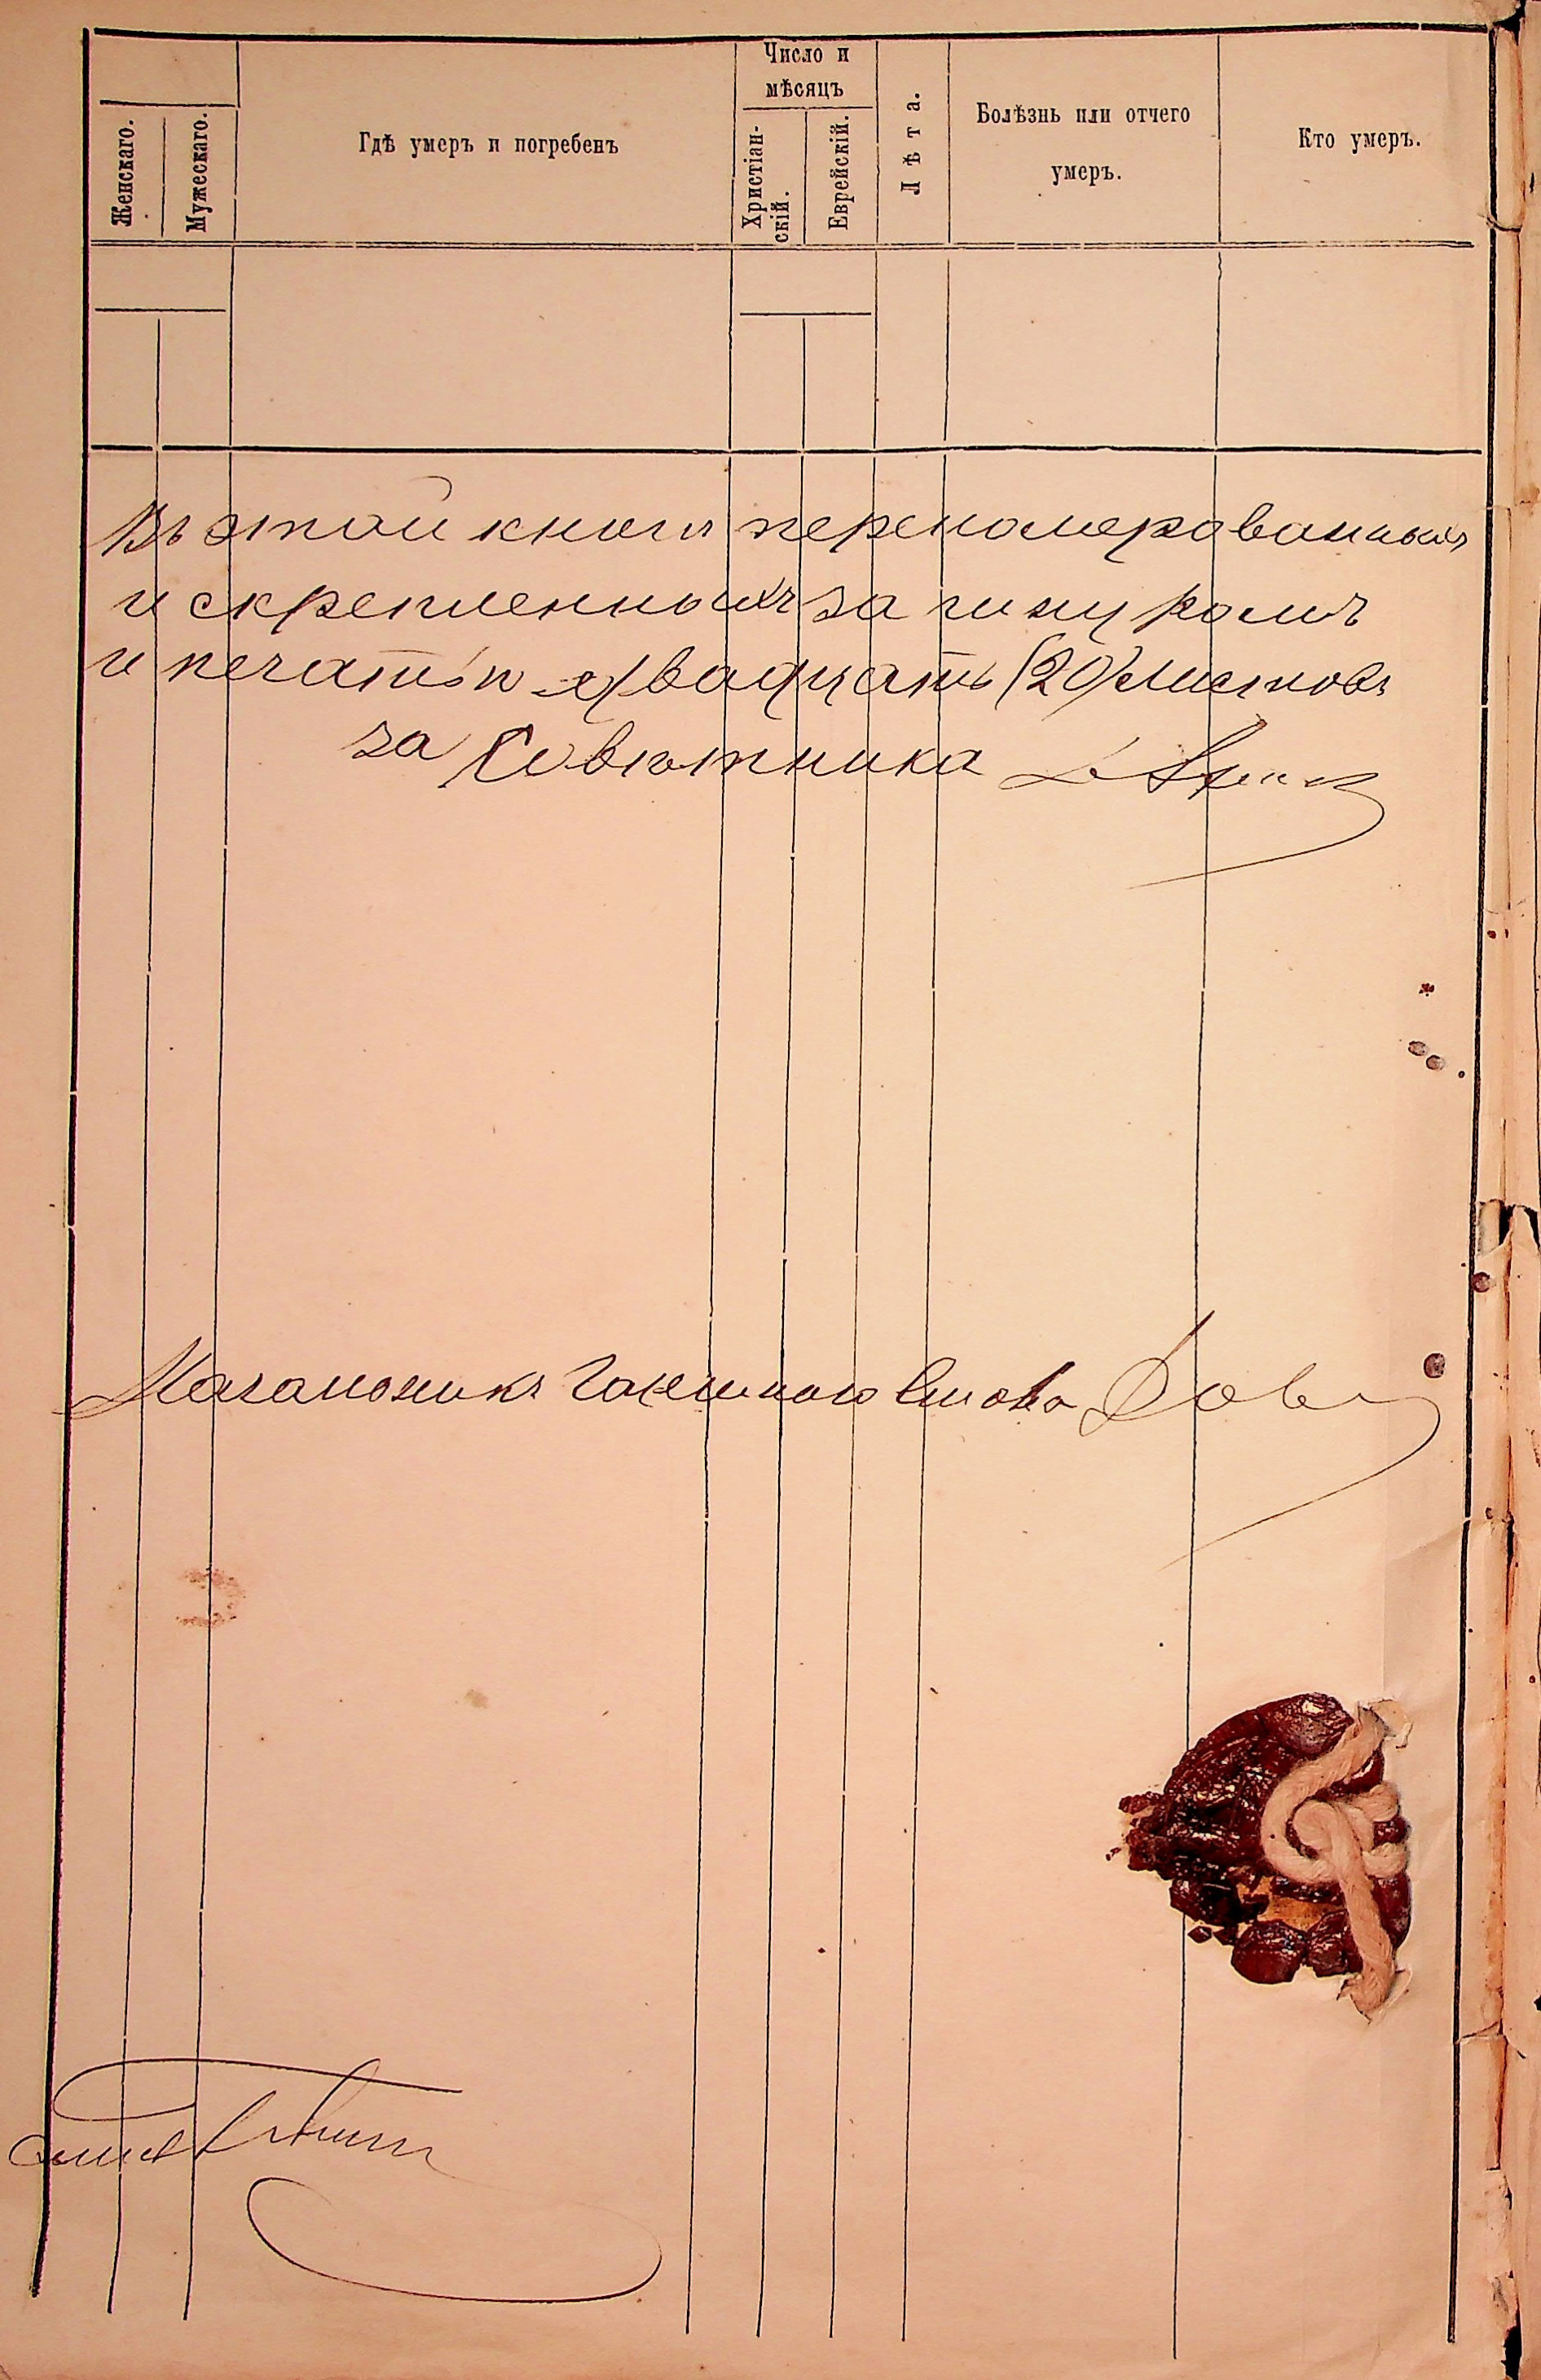 Женскаго.
Мужескаго.
Гдѣ умеръ и погребенъ
Число и
мѣсяцъ
Христіан-
скій.
Еврейскій.
Лѣта.
Болѣзнь или отчего
умеръ.
Кто умеръ.
Въ этой книги переномерованныхъ
и скрепленныхъ за шнуромъ
и печатью двадцать (20) листовъ
за Совѣтника